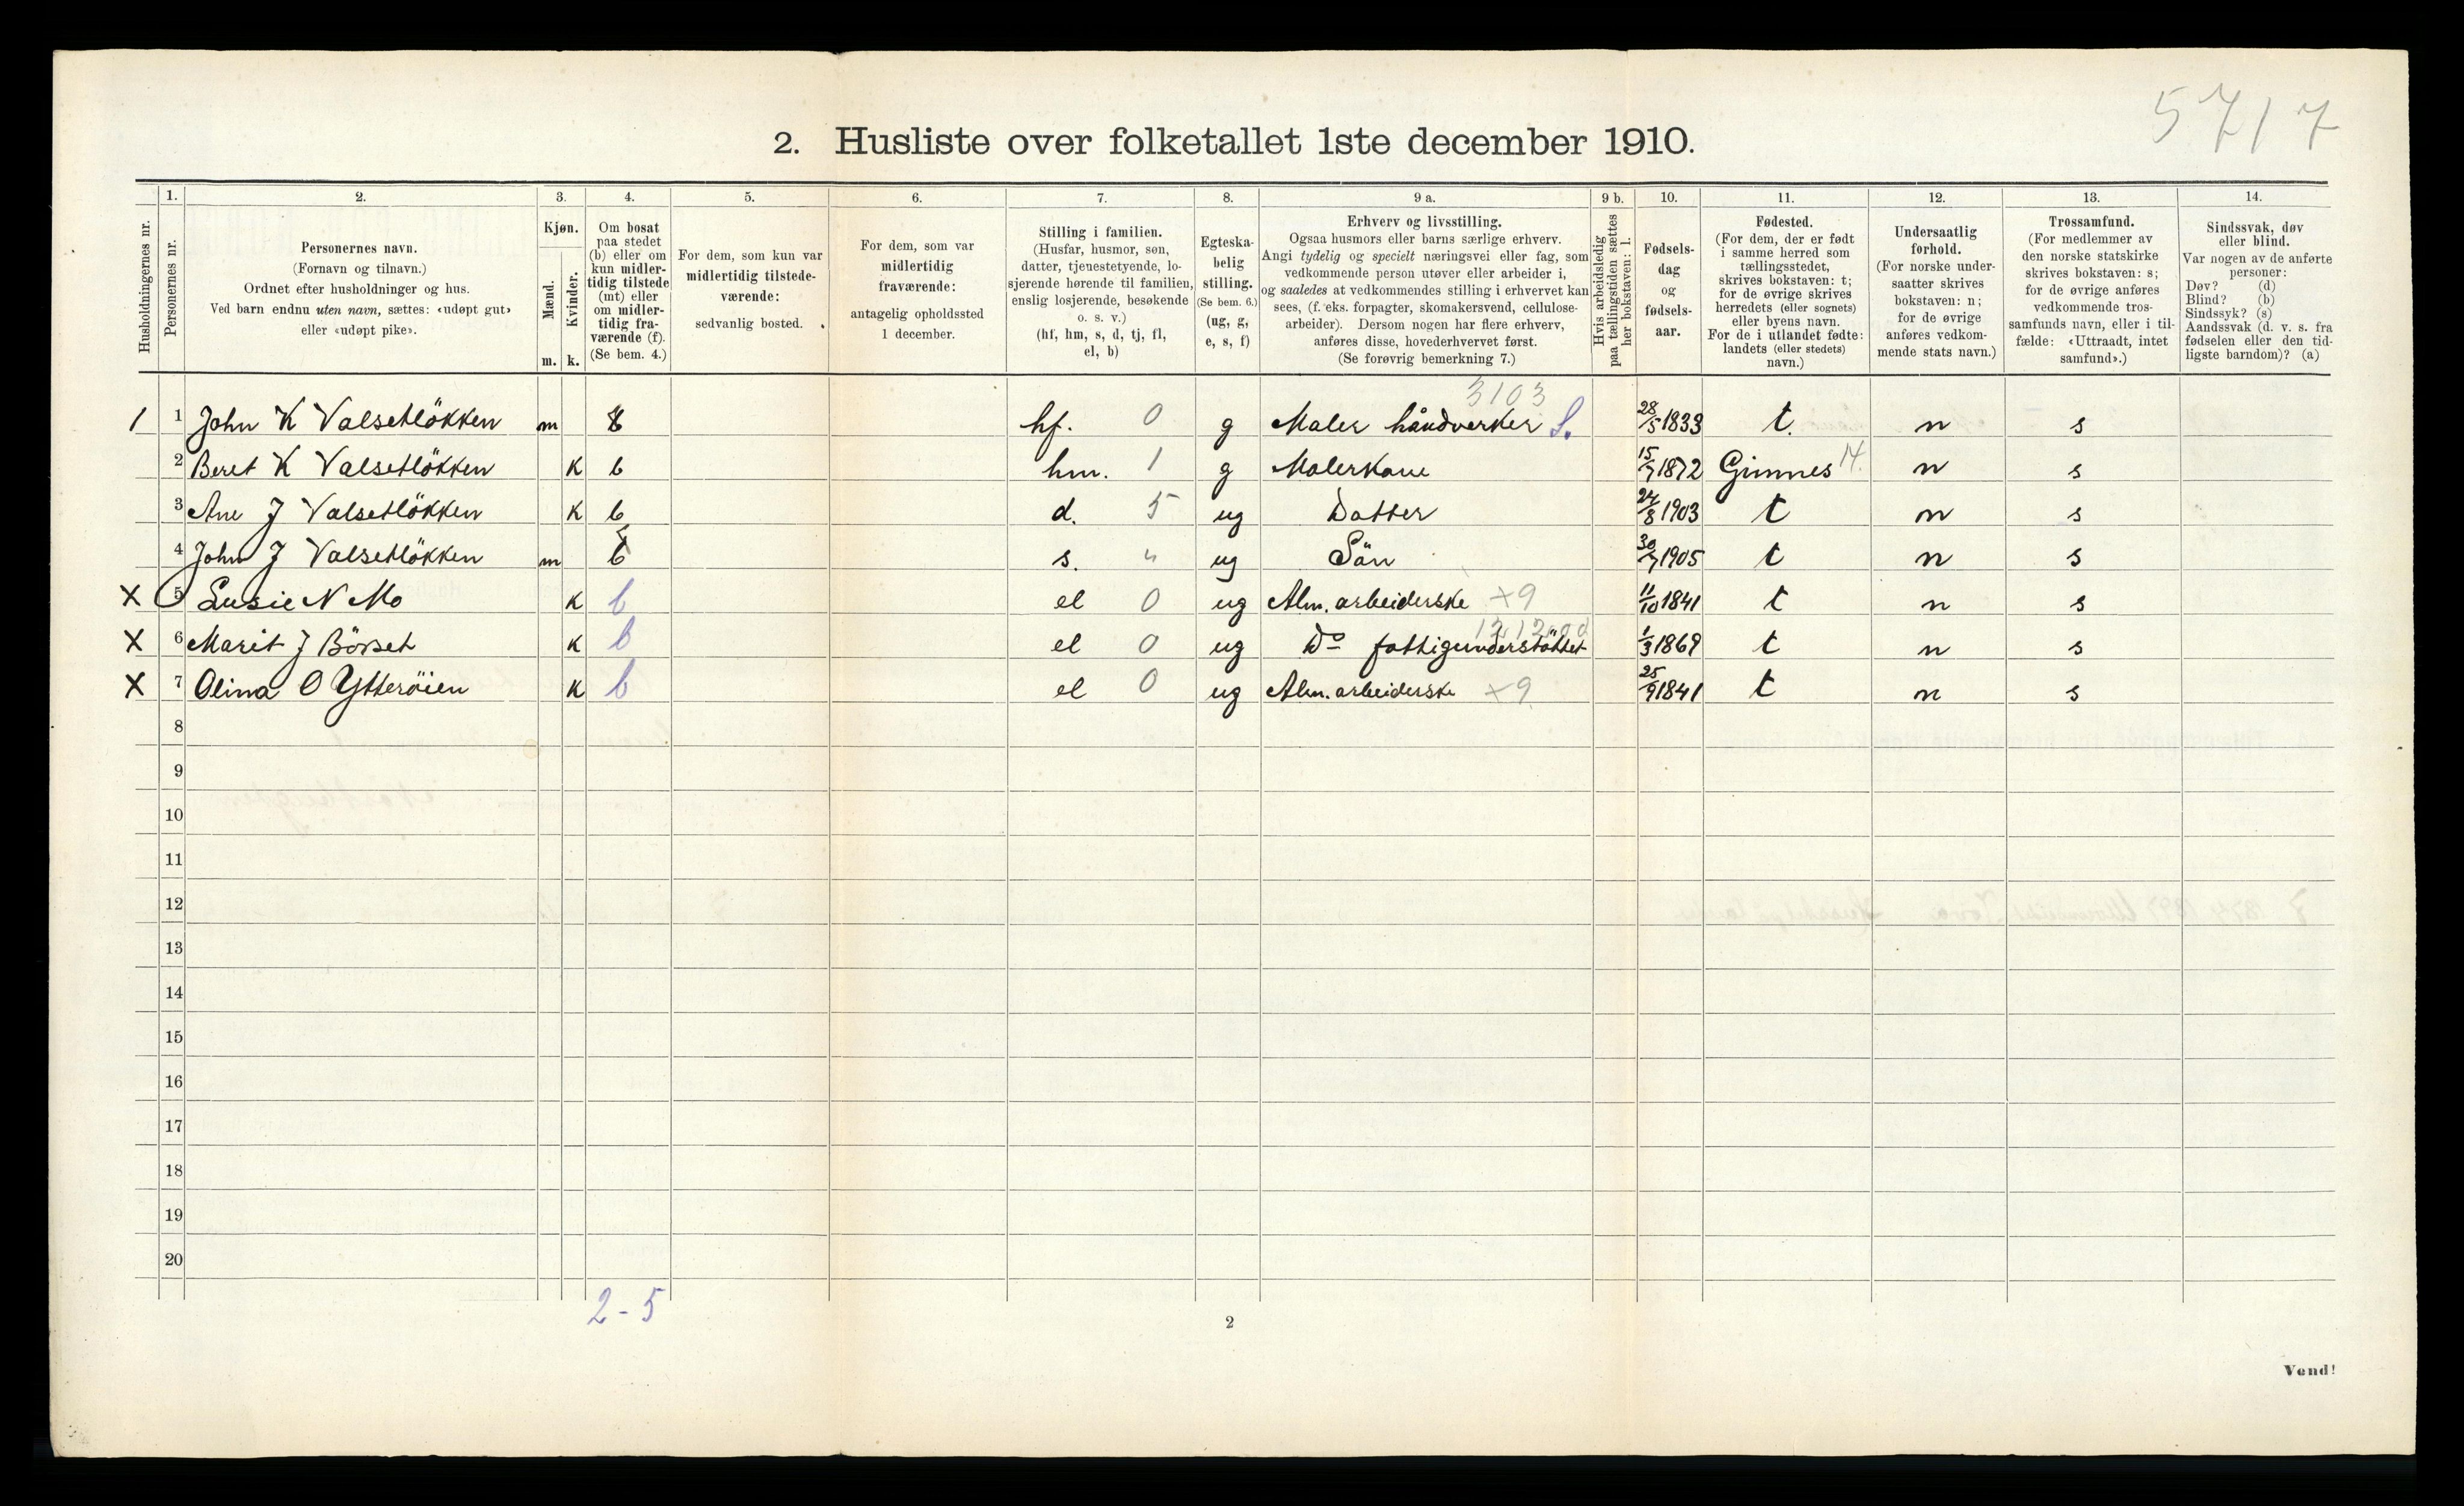 5717
2. Husliste over folketallet 1ste december 1910.
Husholdningernes nr.
1. Personernes nr.
2. Personernes navn. (Fornavn og tilnavn.) Ordnet efter husholdninger og hus. Ved barn endnu uten navn, sættes: «udøpt gut» eller «udøpt pike».
3. Kjøn. Mænd. m. Kvinder. k.
4. Om bosat paa stedet (b) eller om kun midlertidig tilstede (mt) eller om midlertidig fraværende (f). (Se bem. 4.)
5. For dem, som kun var midlertidig tilstedeværende: sedvanlig bosted.
6. For dem, som var midlertidig fraværende: antagelig opholdssted 1 december.
7. Stilling i familien. (Husfar, husmor, søn, datter, tjenestetyende, losjerende hørende til familien, enslig losjerende, besøkende o. s. v.) (hf, hm, s, d, tj, fl, el, b)
8. Egteskabelig stilling. (Se bem. 6.) (ug, g, e, s, f)
9 a. Erhverv og livsstilling. Ogsaa husmors eller barns særlige erhverv. Angi tydelig og specielt næringsvei eller fag, som vedkommende person utøver eller arbeider i, og saaledes at vedkommendes stilling i erhvervet kan sees, (f. eks. forpagter, skomakersvend, cellulosearbeider). Dersom nogen har flere erhverv, anføres disse, hovederhvervet først. (Se forøvrig bemerkning 7.)
9 b. Hvis arbeidsledig paa tællingstiden sættes her bokstaven: l.
10. Fødselsdag og fødselsaar.
11. Fødested. (For dem, der er født i samme herred som tællingsstedet, skrives bokstaven: t; for de øvrige skrives herredets (eller sognets) eller byens navn. For de i utlandet fødte: landets (eller stedets) navn.)
12. Undersaatlig forhold. (For norske undersaatter skrives bokstaven: n; for de øvrige anføres vedkommende stats navn.)
13. Trossamfund. (For medlemmer av den norske statskirke skrives bokstaven: s; for de øvrige anføres vedkommende trossamfunds navn, eller i tilfælde: «Uttraadt, intet samfund».)
14. Sindssvak, døv eller blind. Var nogen av de anførte personer: Døv? (d) Blind? (b) Sindssyk? (s) Aandssvak (d. v. s. fra fødselen eller den tidligste barndom)? (a)
3103
1 1 John K Valsetløkken m b hf. 0 g Maler håndverker S. 28/5 1833 t. n s
2 Beret K Valsetløkken k b hm. 1 g Malerkone 15/7 1872 Gimnes 14. n s
3 Ane J Valsetløkken k b d. 5 ug Datter 24/8 1903 t n s
4 John J Valsetløkken m b s. " ug Sön 30/7 1905 t n s
X 5 Lusie N Mo k b el 0 ug Alm. arbeiderske +9 11/10 1841 t n s
X 6 Marit J Börset k b el 0 ug Do fattigunderstöttet 1/3 1869 t n s
X 7 Olina O Ytteröien k b el 0 ug Alm. arbeiderske +9. 25/9 1841 t n s
8
9
10
11
12
13
14
15
16
17
18
19
20
2 - 5
2
Vend!